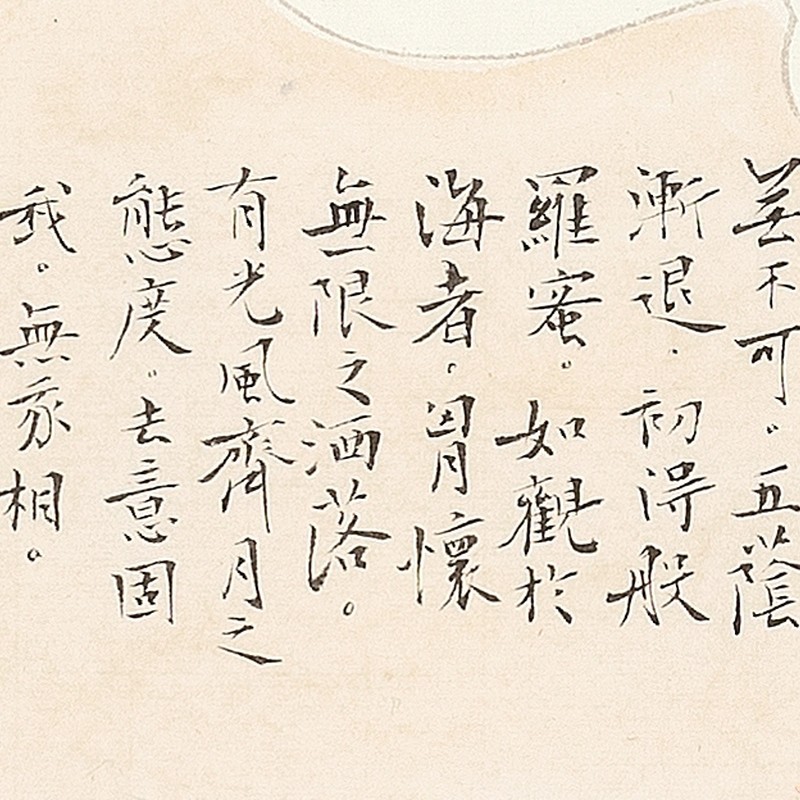 不可。五蔭
漸退．初得般
羅蜜。如觀於
海者。胃懷
無限之洒落。
有光風齊月之
態度。去意固
我。無永相。